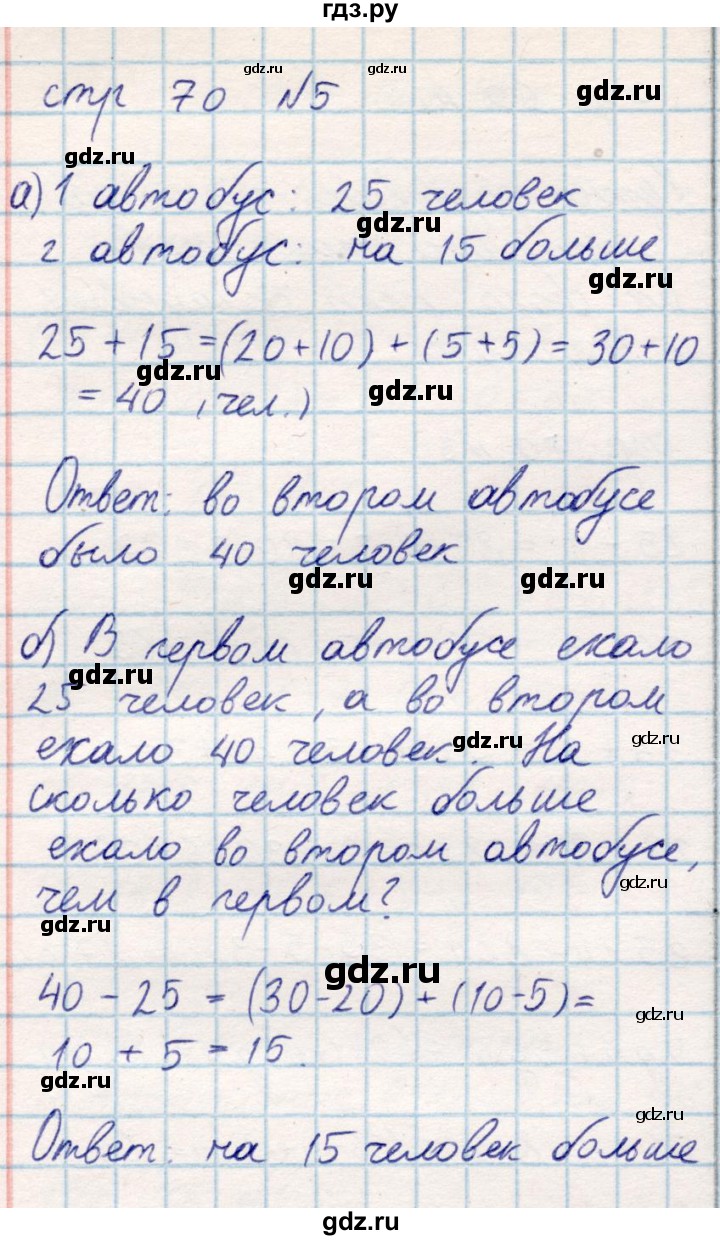 гдз.ру
gdz.ru gdz.ru
стр 70 №5 gdz.ru
gdz.ru
а) 1 автобус: 25 человек
gdz.ru
2 автобус: на 15 больше
gdz.ru
25 + 15 = (20+10) + (5+5) = 30+10
gdz.ru gdz.ru
= 40 (чел.)
Ответ: во втором автобусе
было 40 человек
gdz.ru gdz.ru
б) В первом автобусе ехало
gdz.ru
25 человек, а во втором
ехало 40 человек. На
gdz.ru gdz.ru
сколько человек больше
ехало во втором автобусе,
gdz.ru
чем в первом?
gdz.ru
gdz.ru
40 - 25 = (30-20) + (10-5) =
gdz.ru
10 + 5 = 15.
gdz.ru
gdz.ru
Ответ: на 15 человек больше
gdz.ru